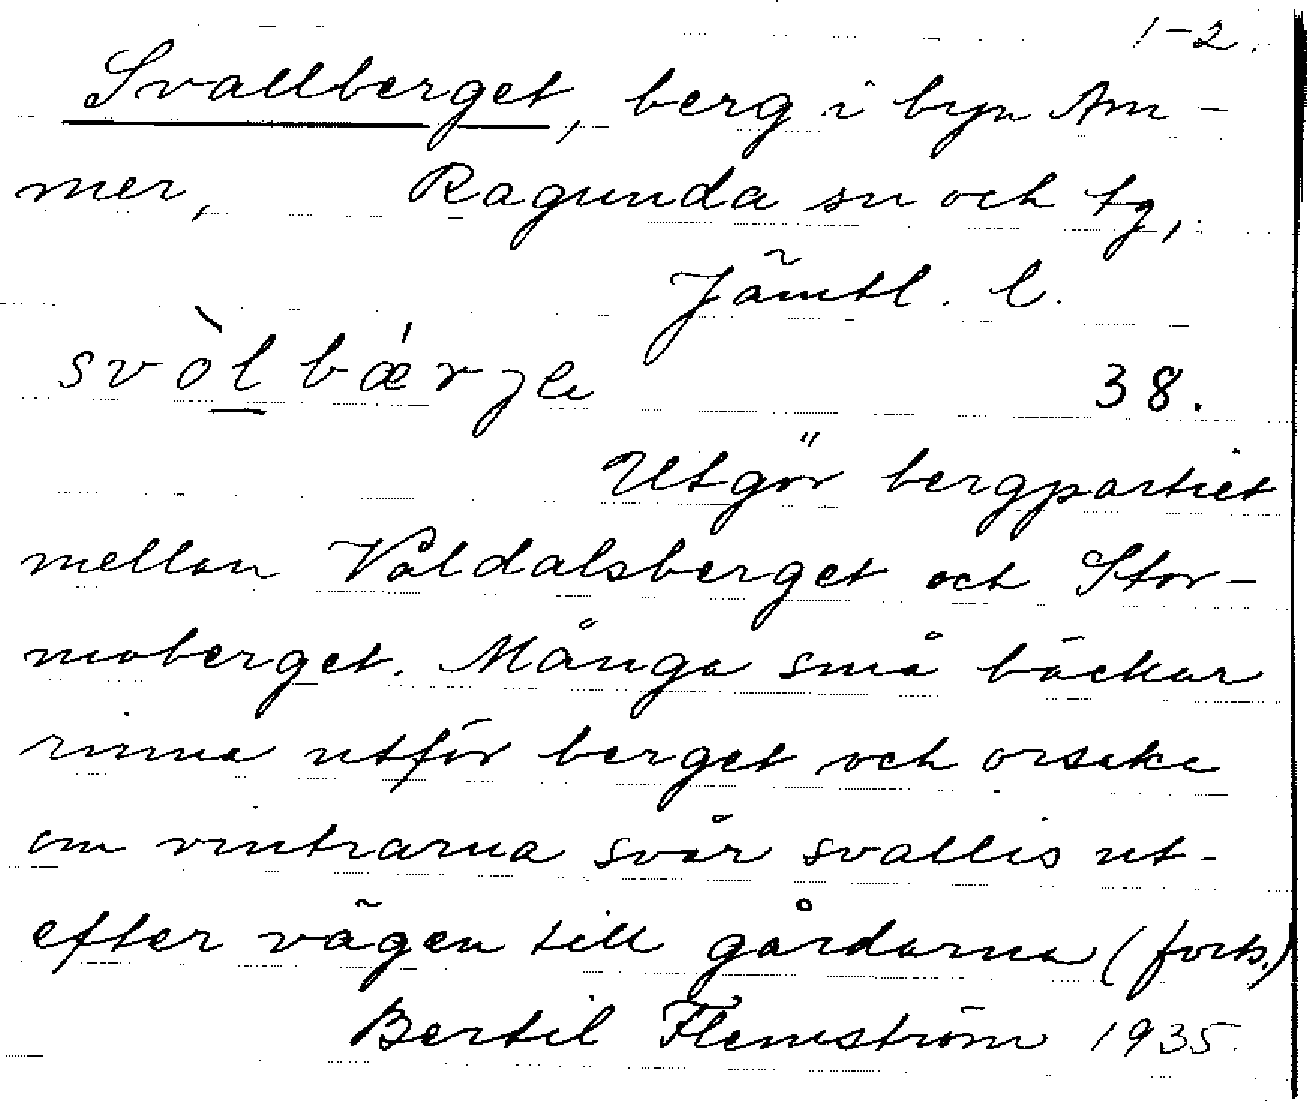 1-2.
Svallberget, berg i byn Am-
mer, Ragunda sn och tg,
Jämtl. l.
svòlbǽrje 38.
Utgör bergpartiet
mellan Våldalsberget och Stor-
moberget. Många små bäckar
rinna utför berget och orsaka
om vintrarna svår svallis ut-
efter vägen till gårdarna (forts.)
Bertil Flemström 1935.